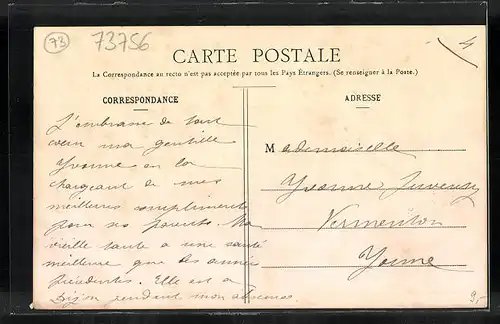 73
73756
4
CARTE POSTALE
La Correspondance au recto n'est pas acceptée par tous les Pays Étrangers. (Se renseigner à la Poste.)
CORRESPONDANCE
J'embrasse de tout
cœur ma gentille
Yvonne en la
chargeant de mes
meilleurs compliments
pour ses parents. Ma
vieille tante a une santé
meilleure que les années
précédentes. Elle est à
Dijon pendant mon absence
ADRESSE
Mademoiselle
Yvonne
Vermenton
Yonne
9.-